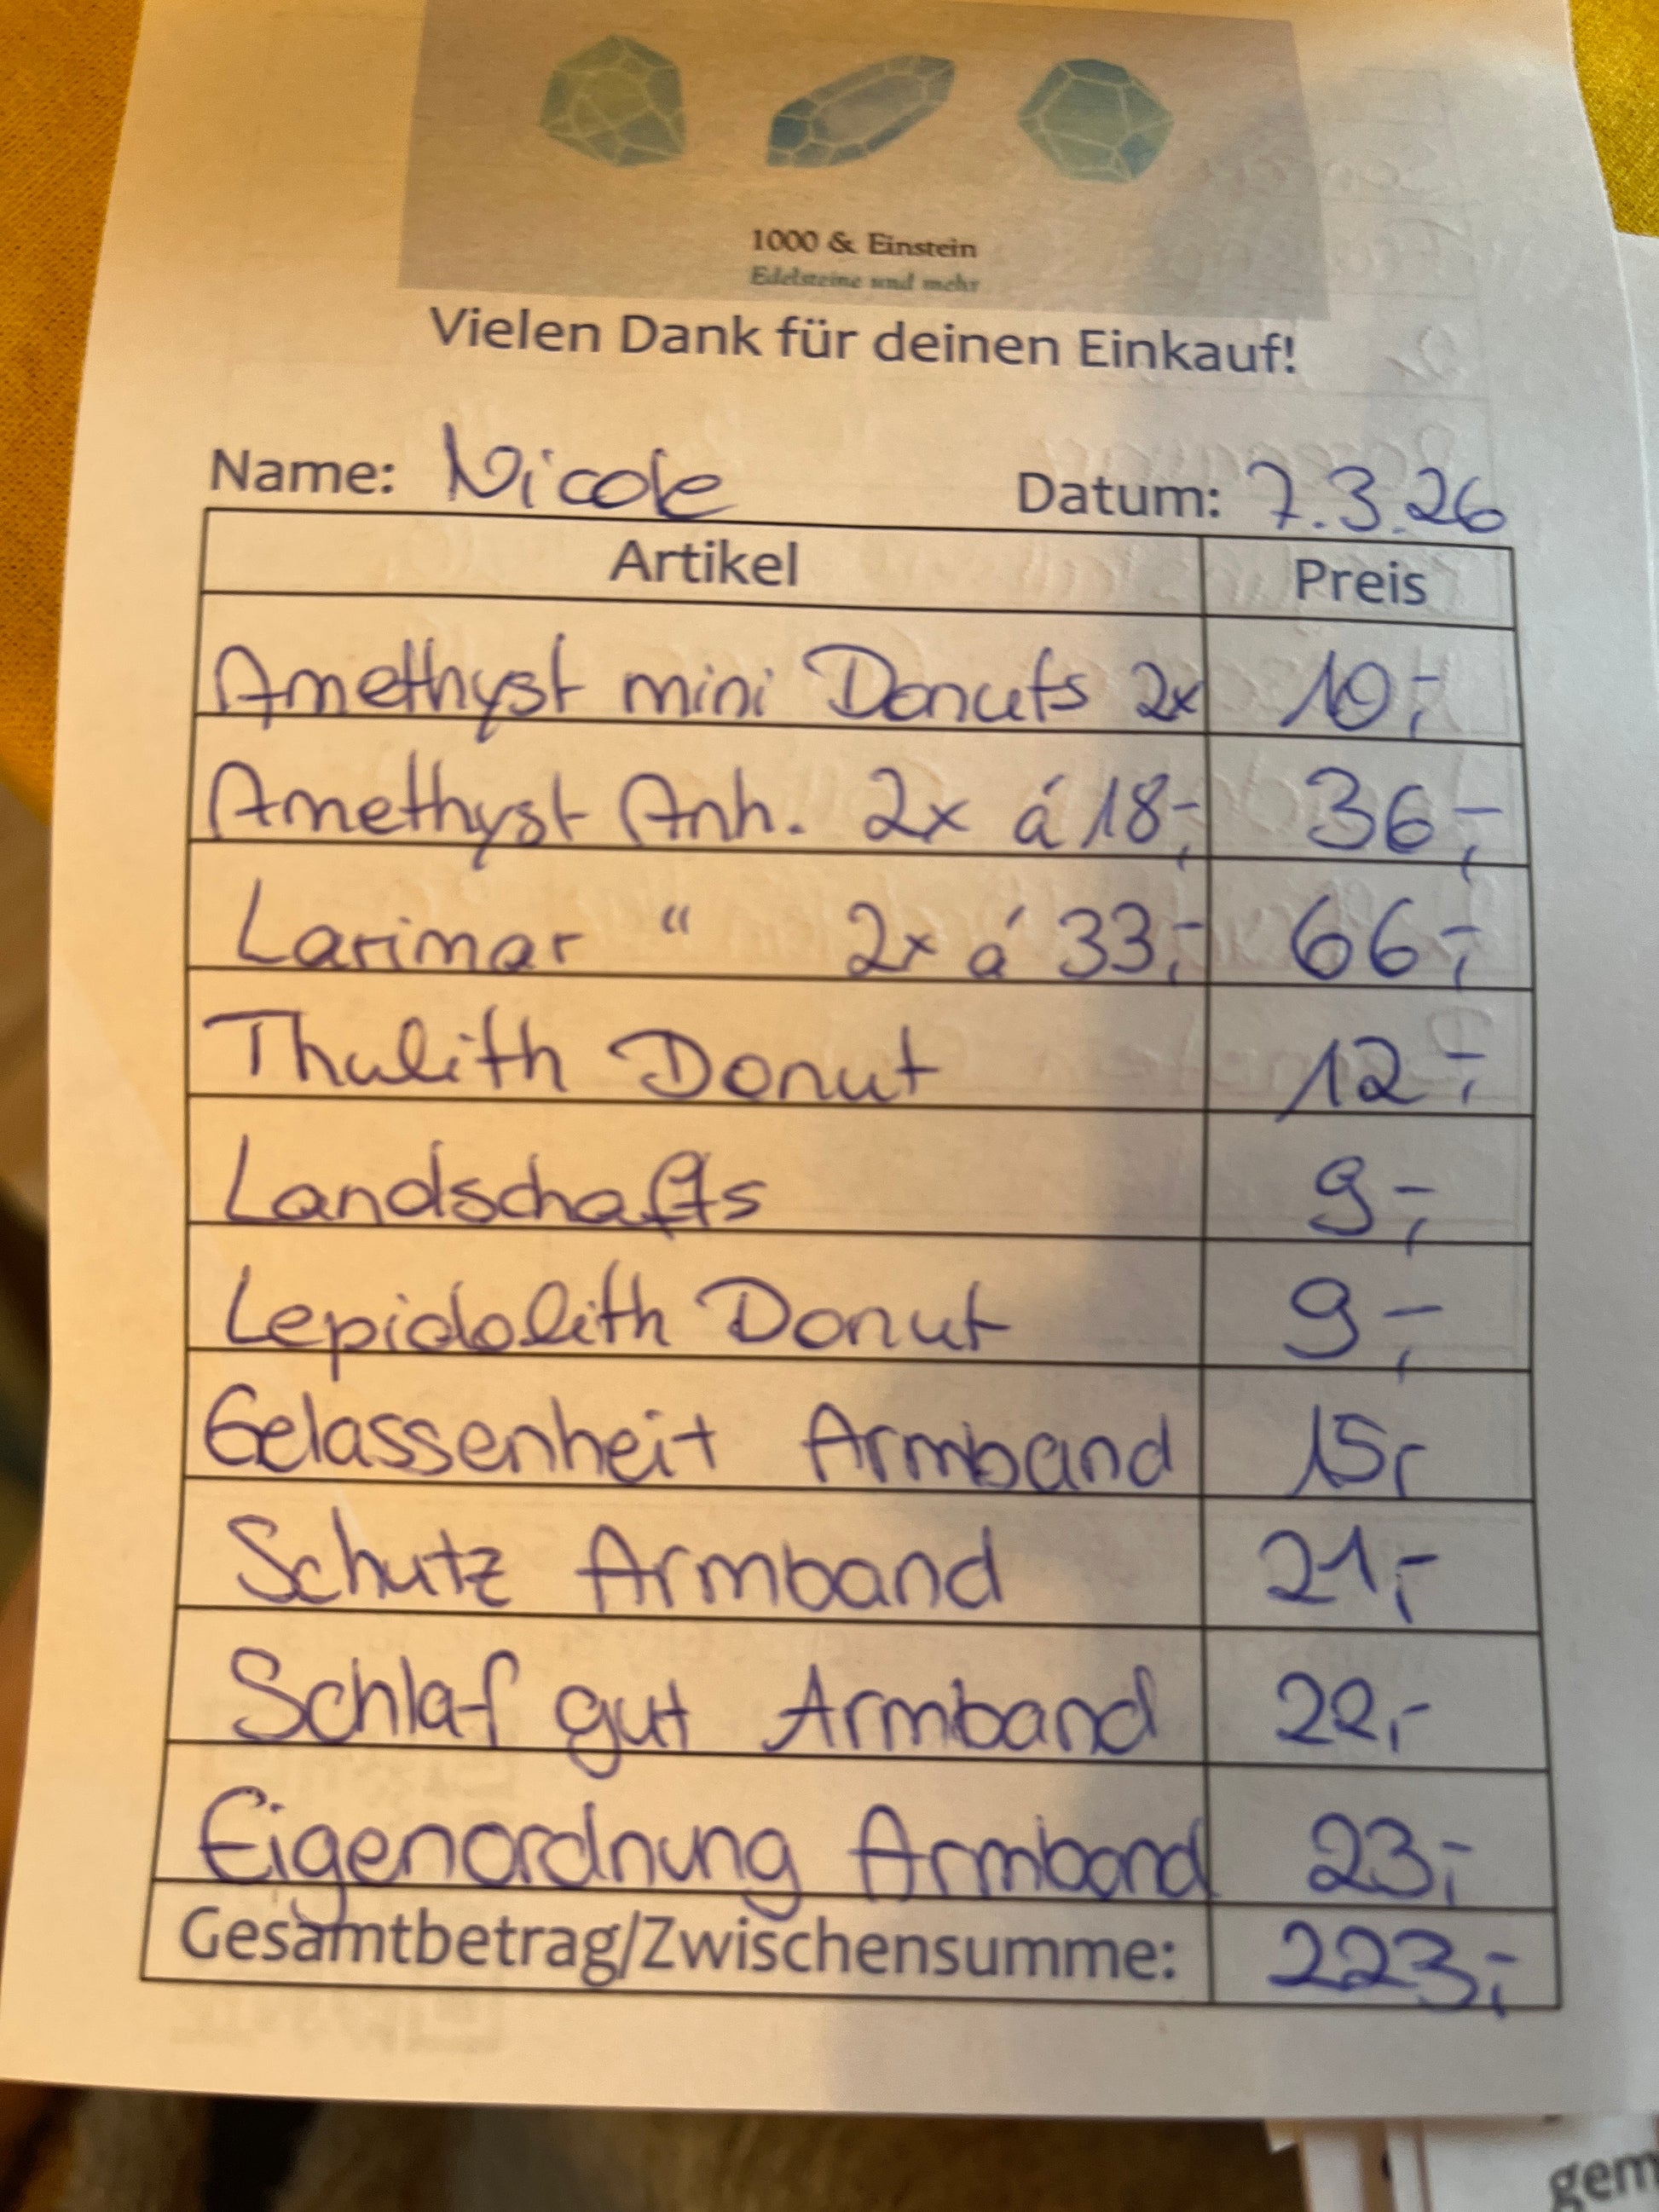 1000 & Einstein
Edelsteine und mehr
Vielen Dank für deinen Einkauf!
Name: Nicole Datum: 7.3.26
Artikel Preis
Amethyst mini Donuts 2x 10,-
Amethyst Anh. 2x á 18,- 36,-
Larimar " 2x á 33,- 66,-
Thulith Donut 12,-
Landschafts 9,-
Lepidolith Donut 9,-
Gelassenheit Armband 15,-
Schutz Armband 21,-
Schlaf gut Armband 22,-
Eigenordnung Armband 23,-
Gesamtbetrag/Zwischensumme: 223,-
gem